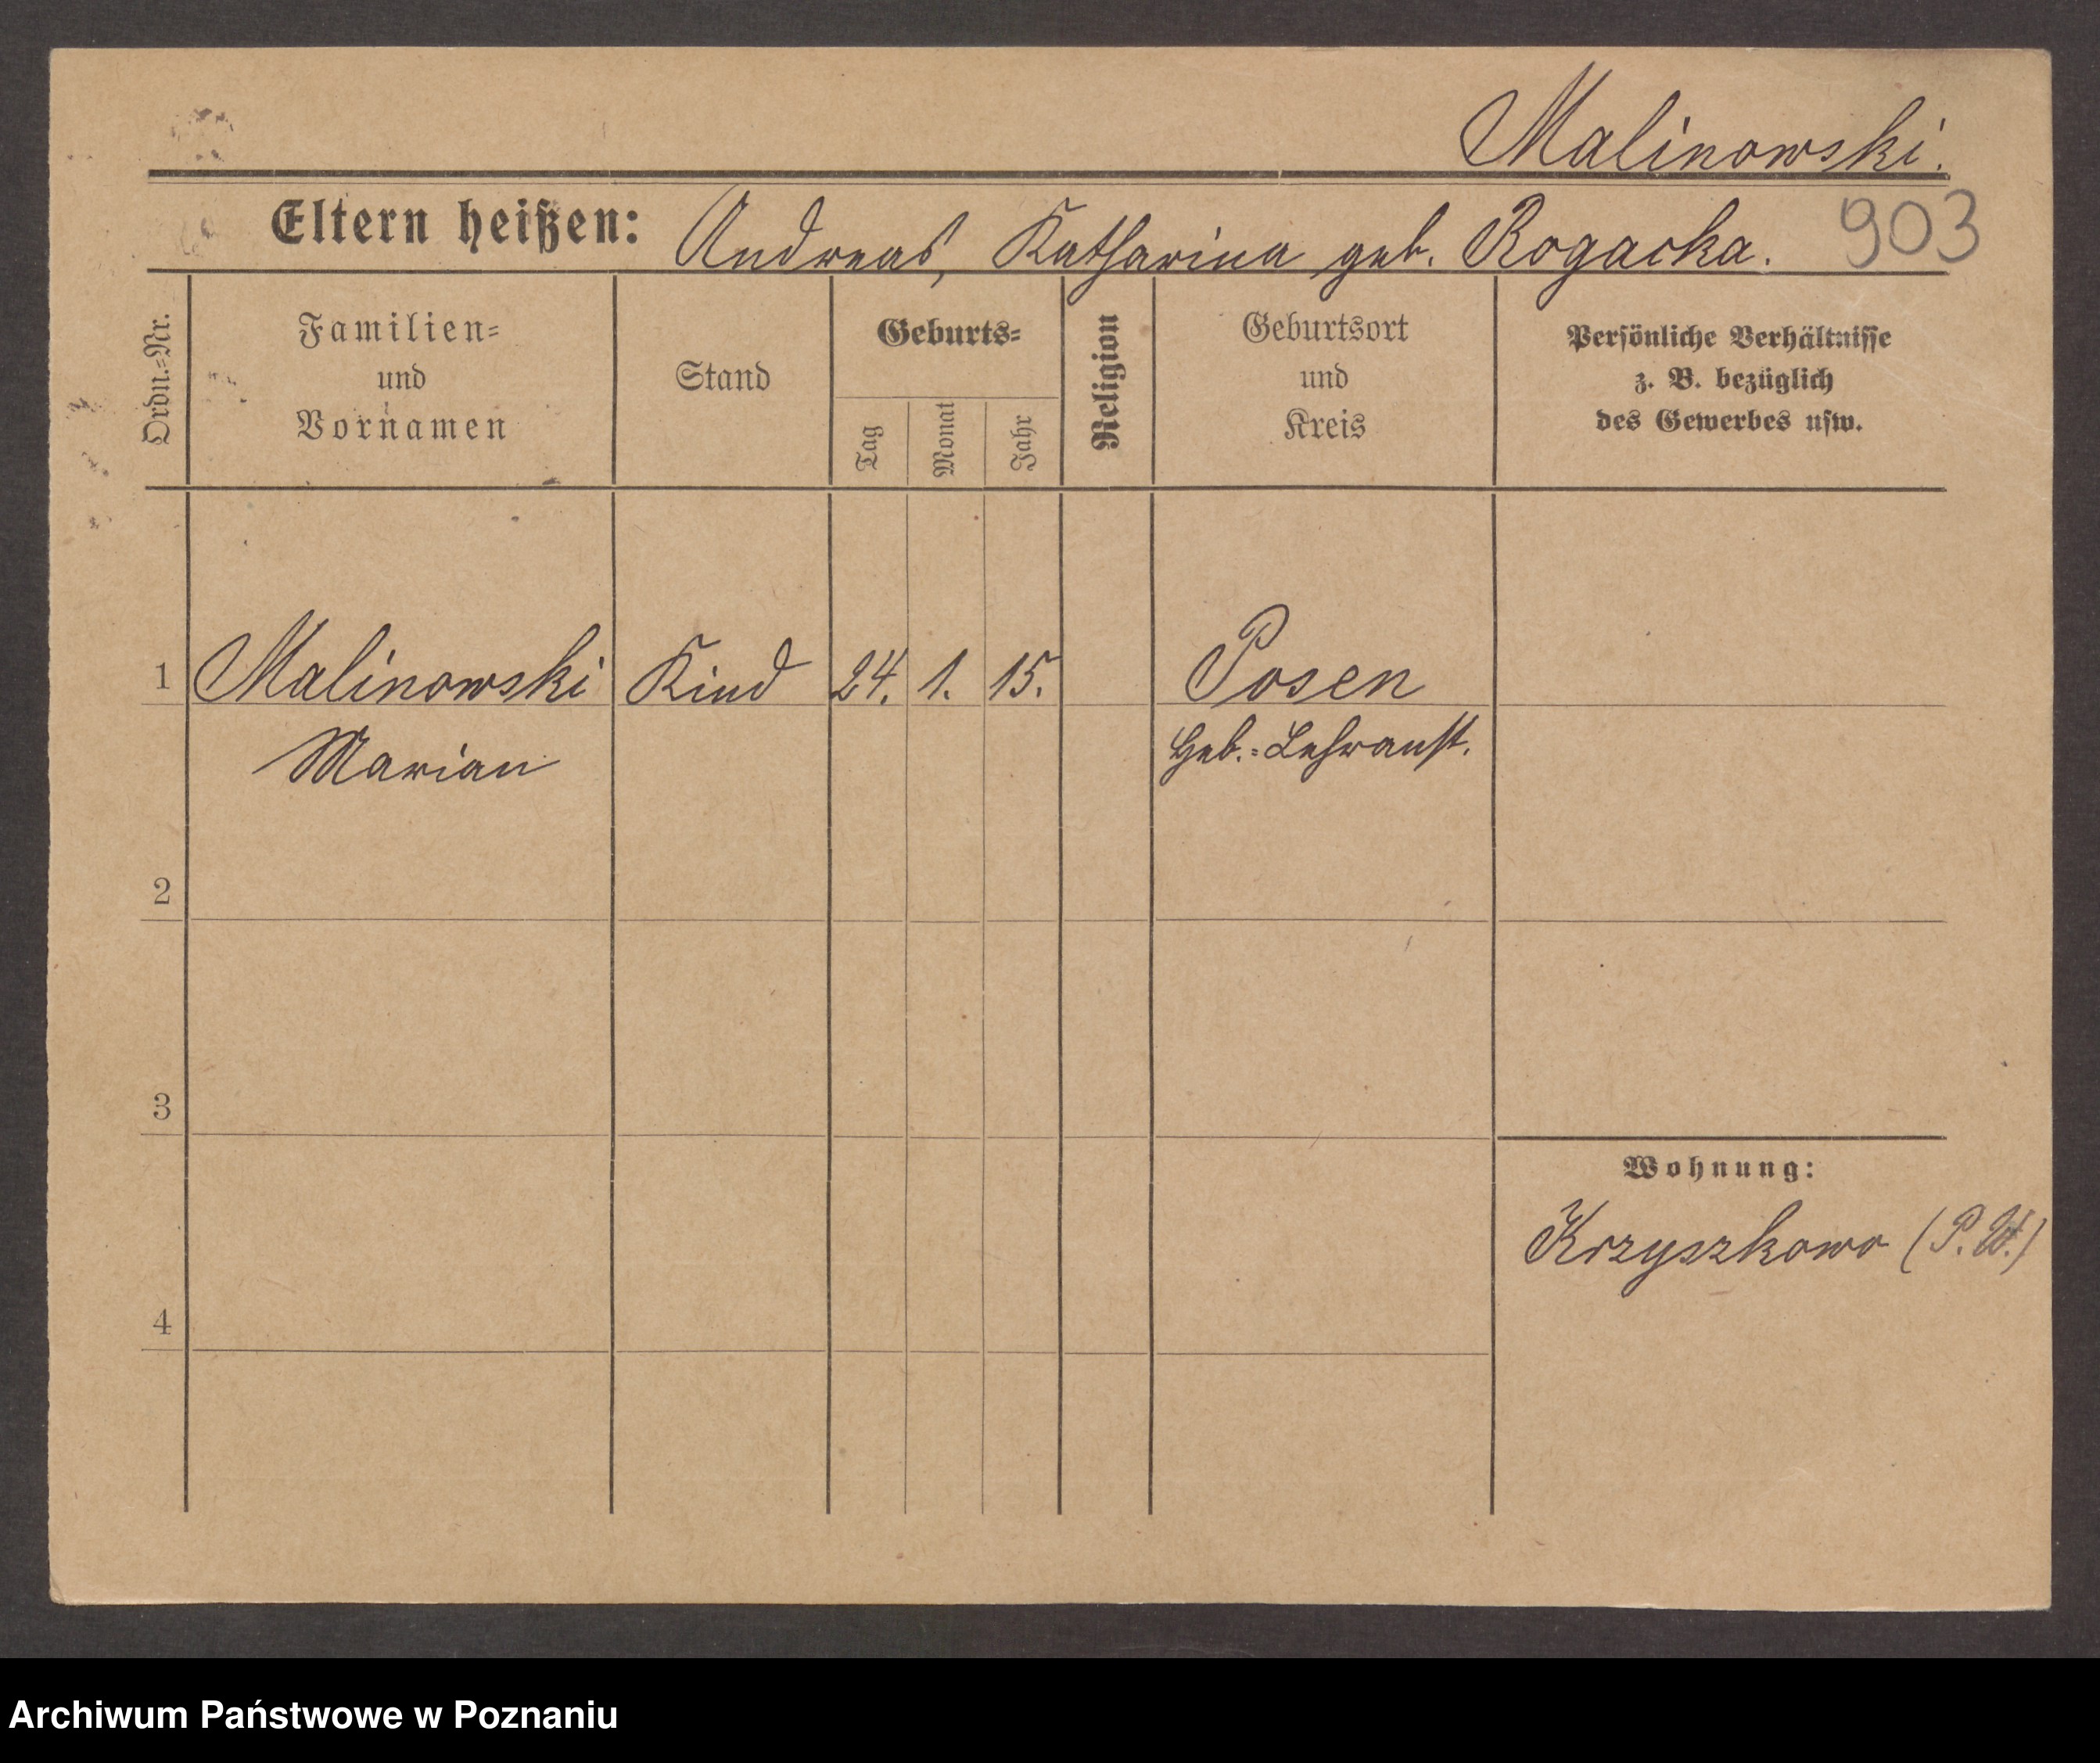 Malinowski.
Eltern heißen: Andreas, Katharina geb. Rogacka. 903
Ordn.-Nr.
Familien-
und
Vornamen
Stand
Geburts-
Tag
Monat
Jahr
Religion
Geburtsort
und
Kreis
Persönliche Verhältnisse
z. B. bezüglich
des Gewerbes usw.
1 Malinowski Kind 24. 1. 15. Posen
Marian Heb.-Lehranst.
2
3
Wohnung:
Krzyszkowo (P.W.)
4
Archiwum Państwowe w Poznaniu